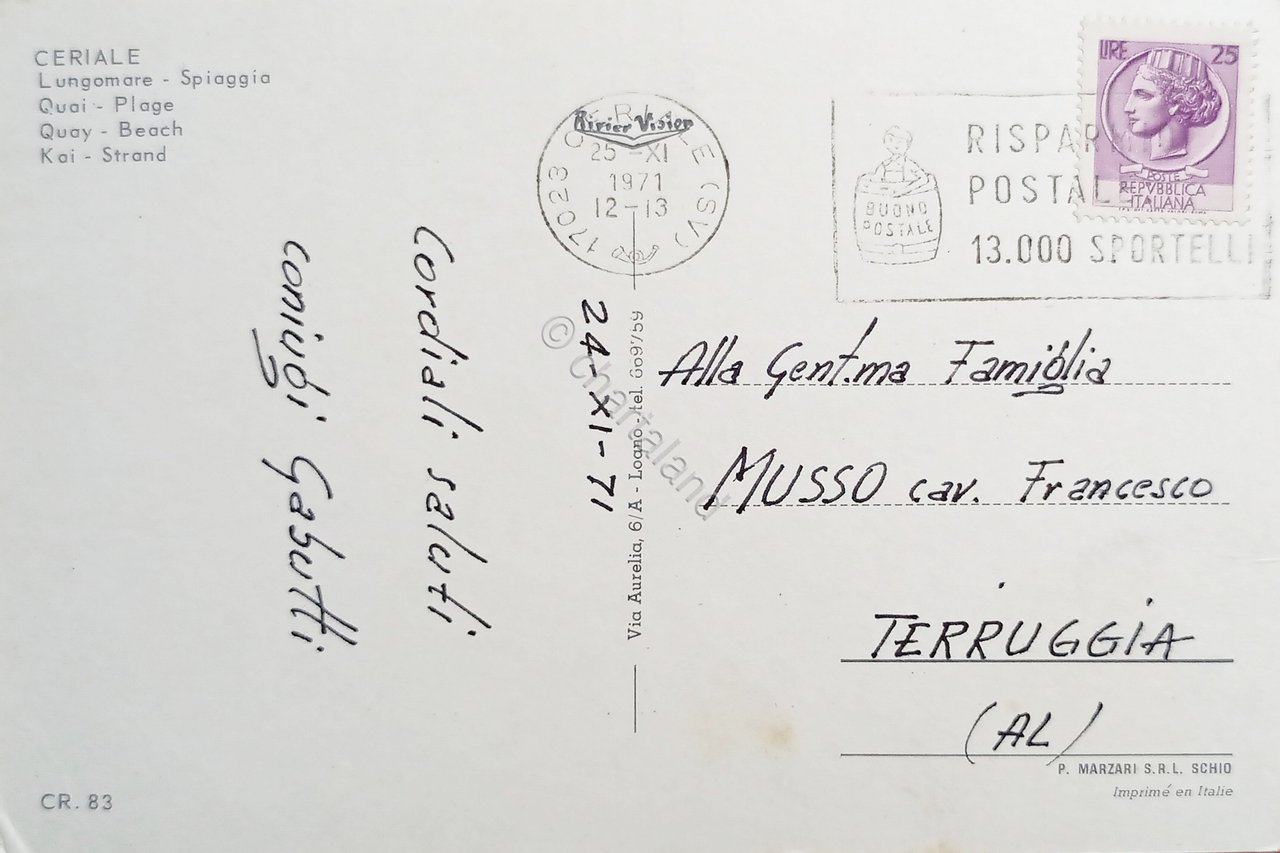 CERIALE
Lungomare - Spiaggia
Quai - Plage
Quay - Beach
Kai - Strand
Rivier Vision
17023 (SV)
25 -XI
1971
12-13
BUONO
POSTALE
RISPAR
POSTAL
13.000 SPORTELLI
LIRE 25
POSTE
REPVBBLICA
ITALIANA
24-XI-71
Cordiali saluti
coniugi Gabutti
Via Aurelia, 6/A - Loano - tel.
© chartaland
Alla Gent.ma Famiglia
MUSSO cav. Francesco
TERRUGGIA
(AL)
P. MARZARI S.R.L. SCHIO
Imprimé en Italie
CR. 83